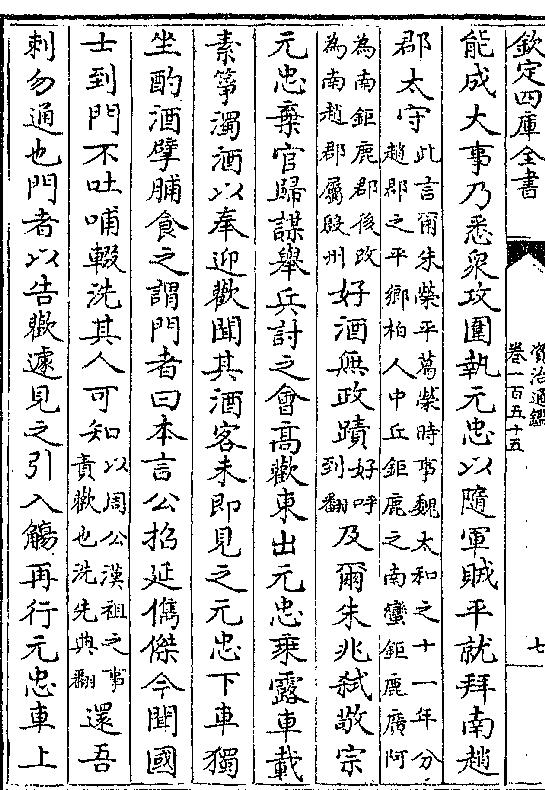 欽定四庫全書
資治通鑑
卷一百五十五
七
能成大事乃悉衆攻圍執元忠以隨軍賊平就拜南趙
郡太守此言爾朱榮平葛榮時事魏太和之十一年分
趙郡之平鄉柏人中丘鉅鹿之南䜌鉅鹿廣阿
為南鉅鹿郡後改
為南趙郡屬殷州好酒無政蹟好呼
到翻及爾朱兆弑敬宗
元忠棄官歸謀舉兵討之會高歡東出元忠乘露車載
素箏濁酒以奉迎歡聞其酒客未即見之元忠下車獨
坐酌酒擘脯食之謂門者曰本言公招延儁傑今聞國
士到門不吐哺輟洗其人可知以周公漢祖之事
責歡也洗先典翻還吾
刺勿通也門者以告歡遽見之引入觴再行元忠車上